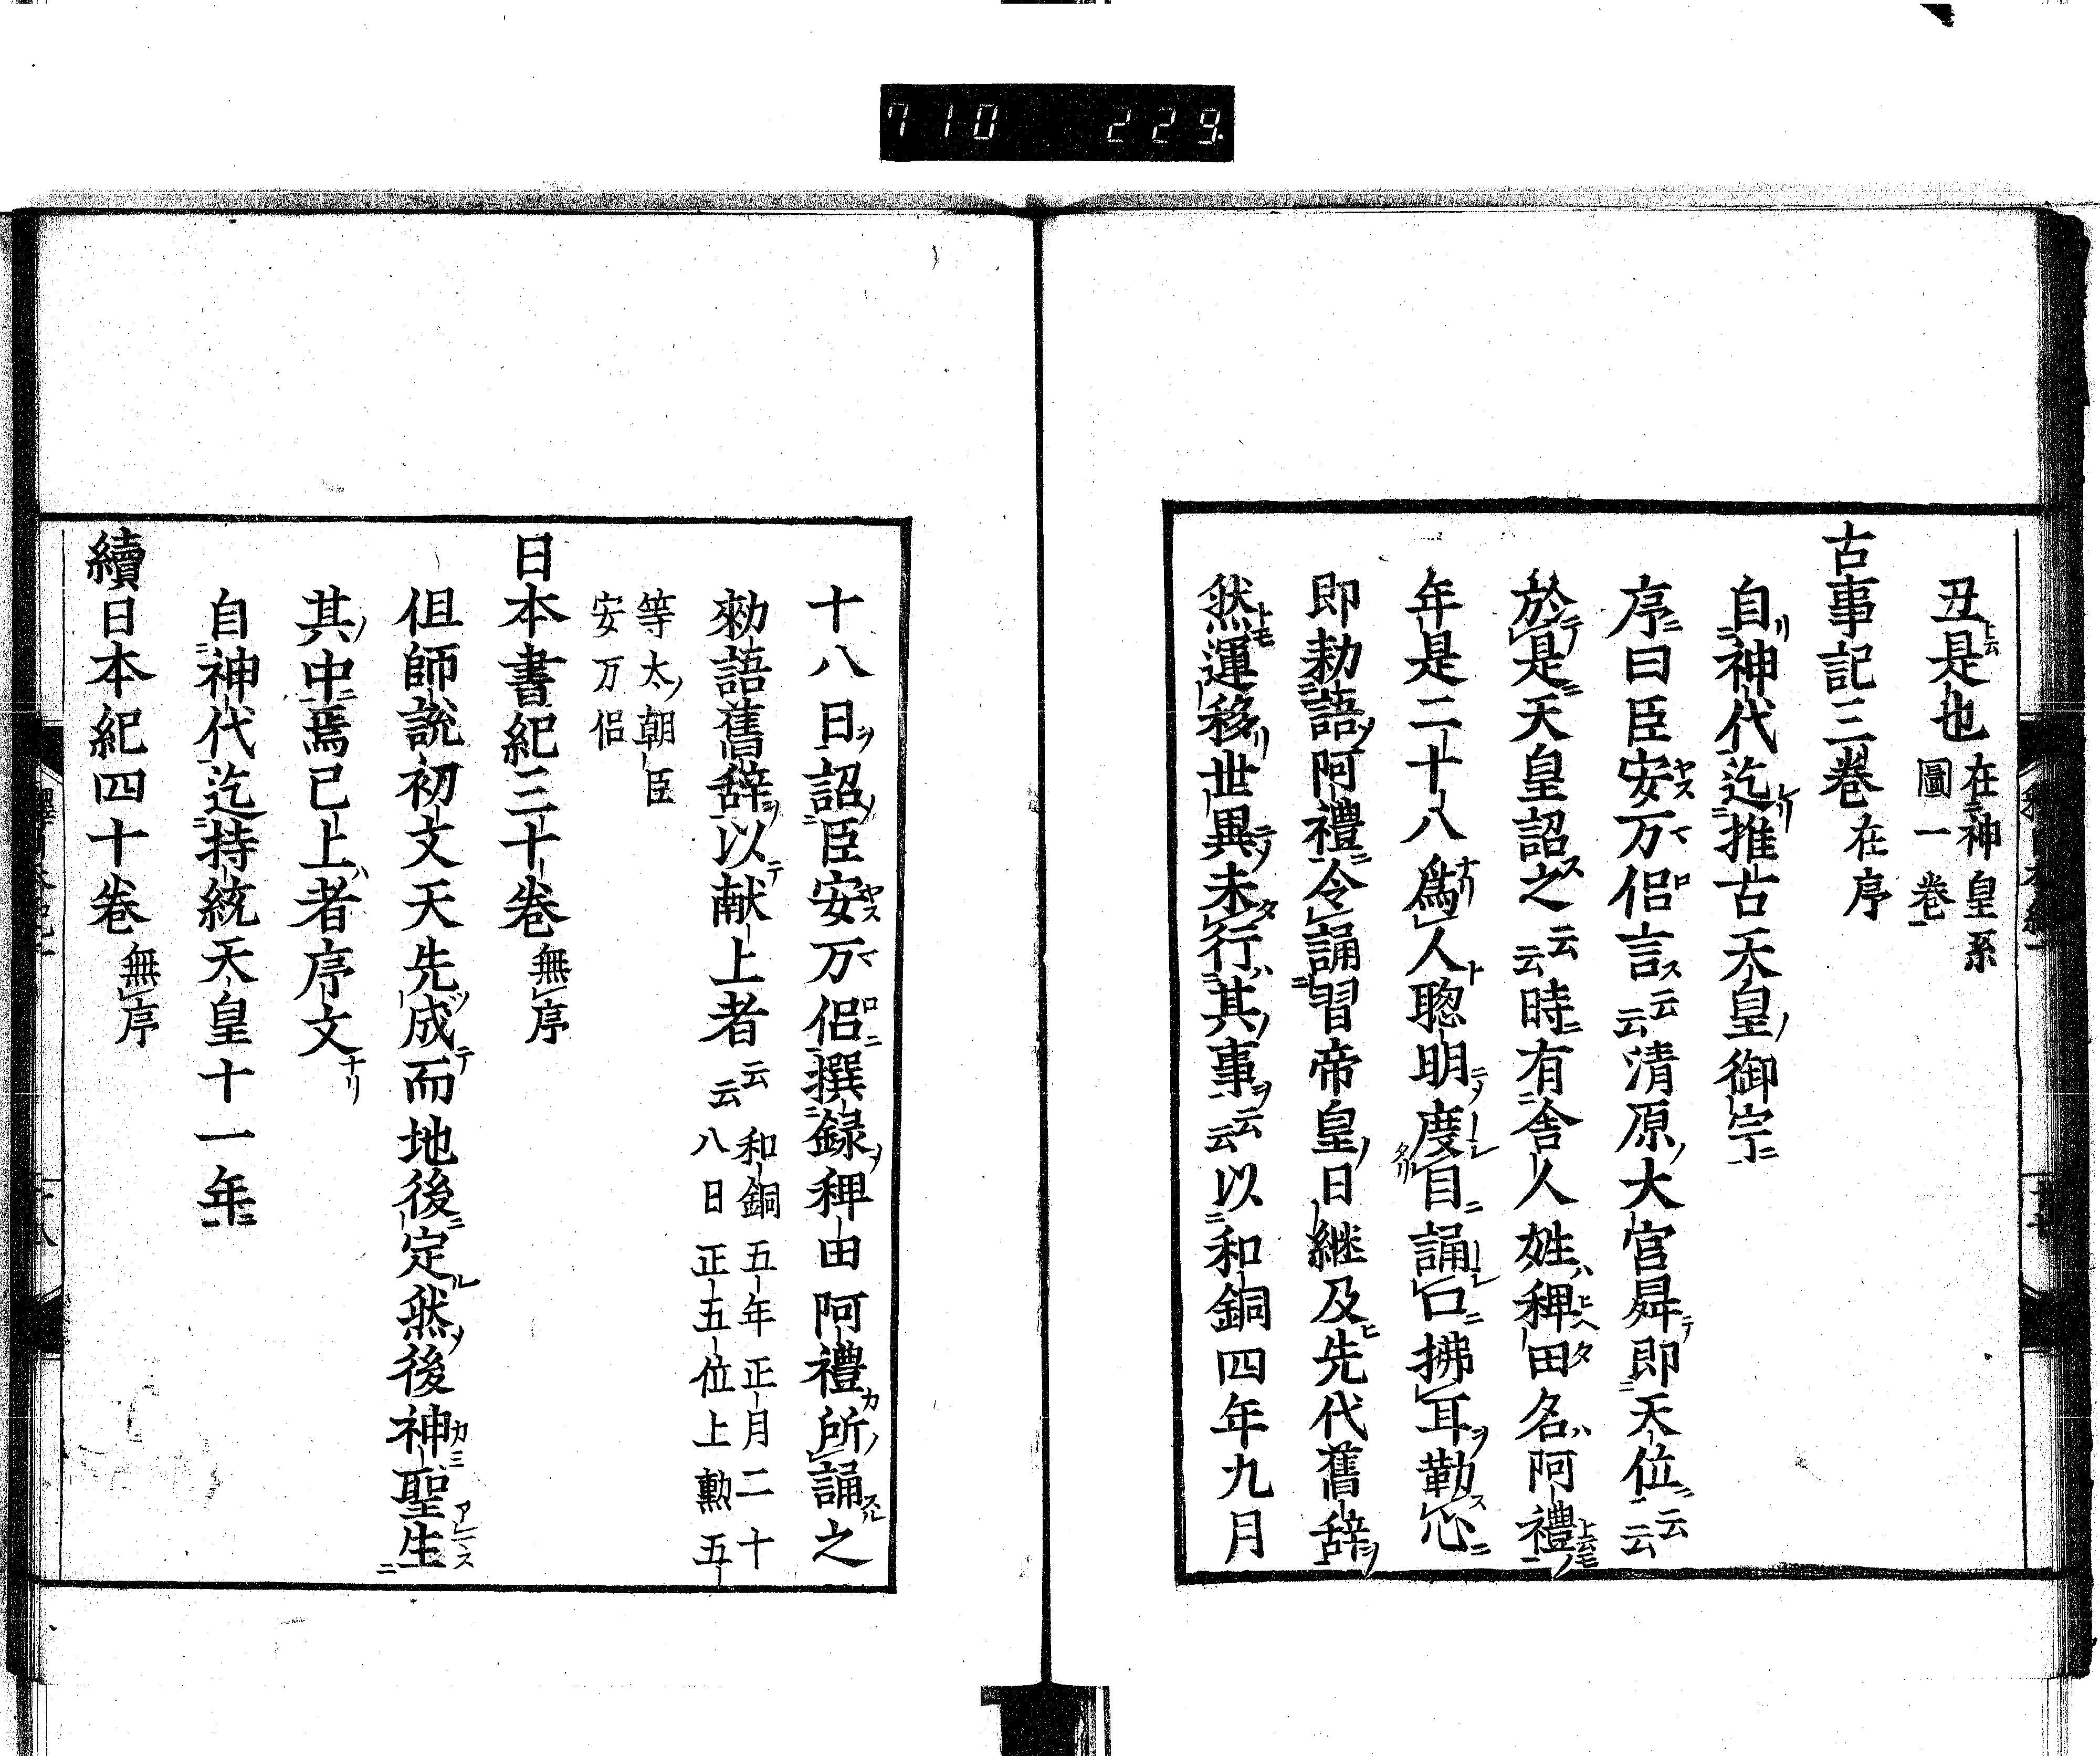 710 229.
丑是也 在神皇系
圖一卷
古事記三卷 在序
自神代迄推古天皇御宇
序曰臣安万侶言云云清原大官昇即天位云云
於是天皇詔之云云時有舍人姓稗田名阿禮
年是二十八爲人聰明度目誦口拂耳勒心
即勅語阿禮令誦習帝皇日継及先代舊辞
然運移世異未行其事云云以和銅四年九月
十八日詔臣安万侶撰録稗田阿禮所誦之
勅語舊辞以献上者云云 和銅五年正月二十
八日正五位上勲五
等太朝臣
安万侶
日本書紀三十卷 無序
但師説初文天先成而地後定然後神聖生
其中焉已上者序文
自神代迄持統天皇十一年
續日本紀四十卷 無序